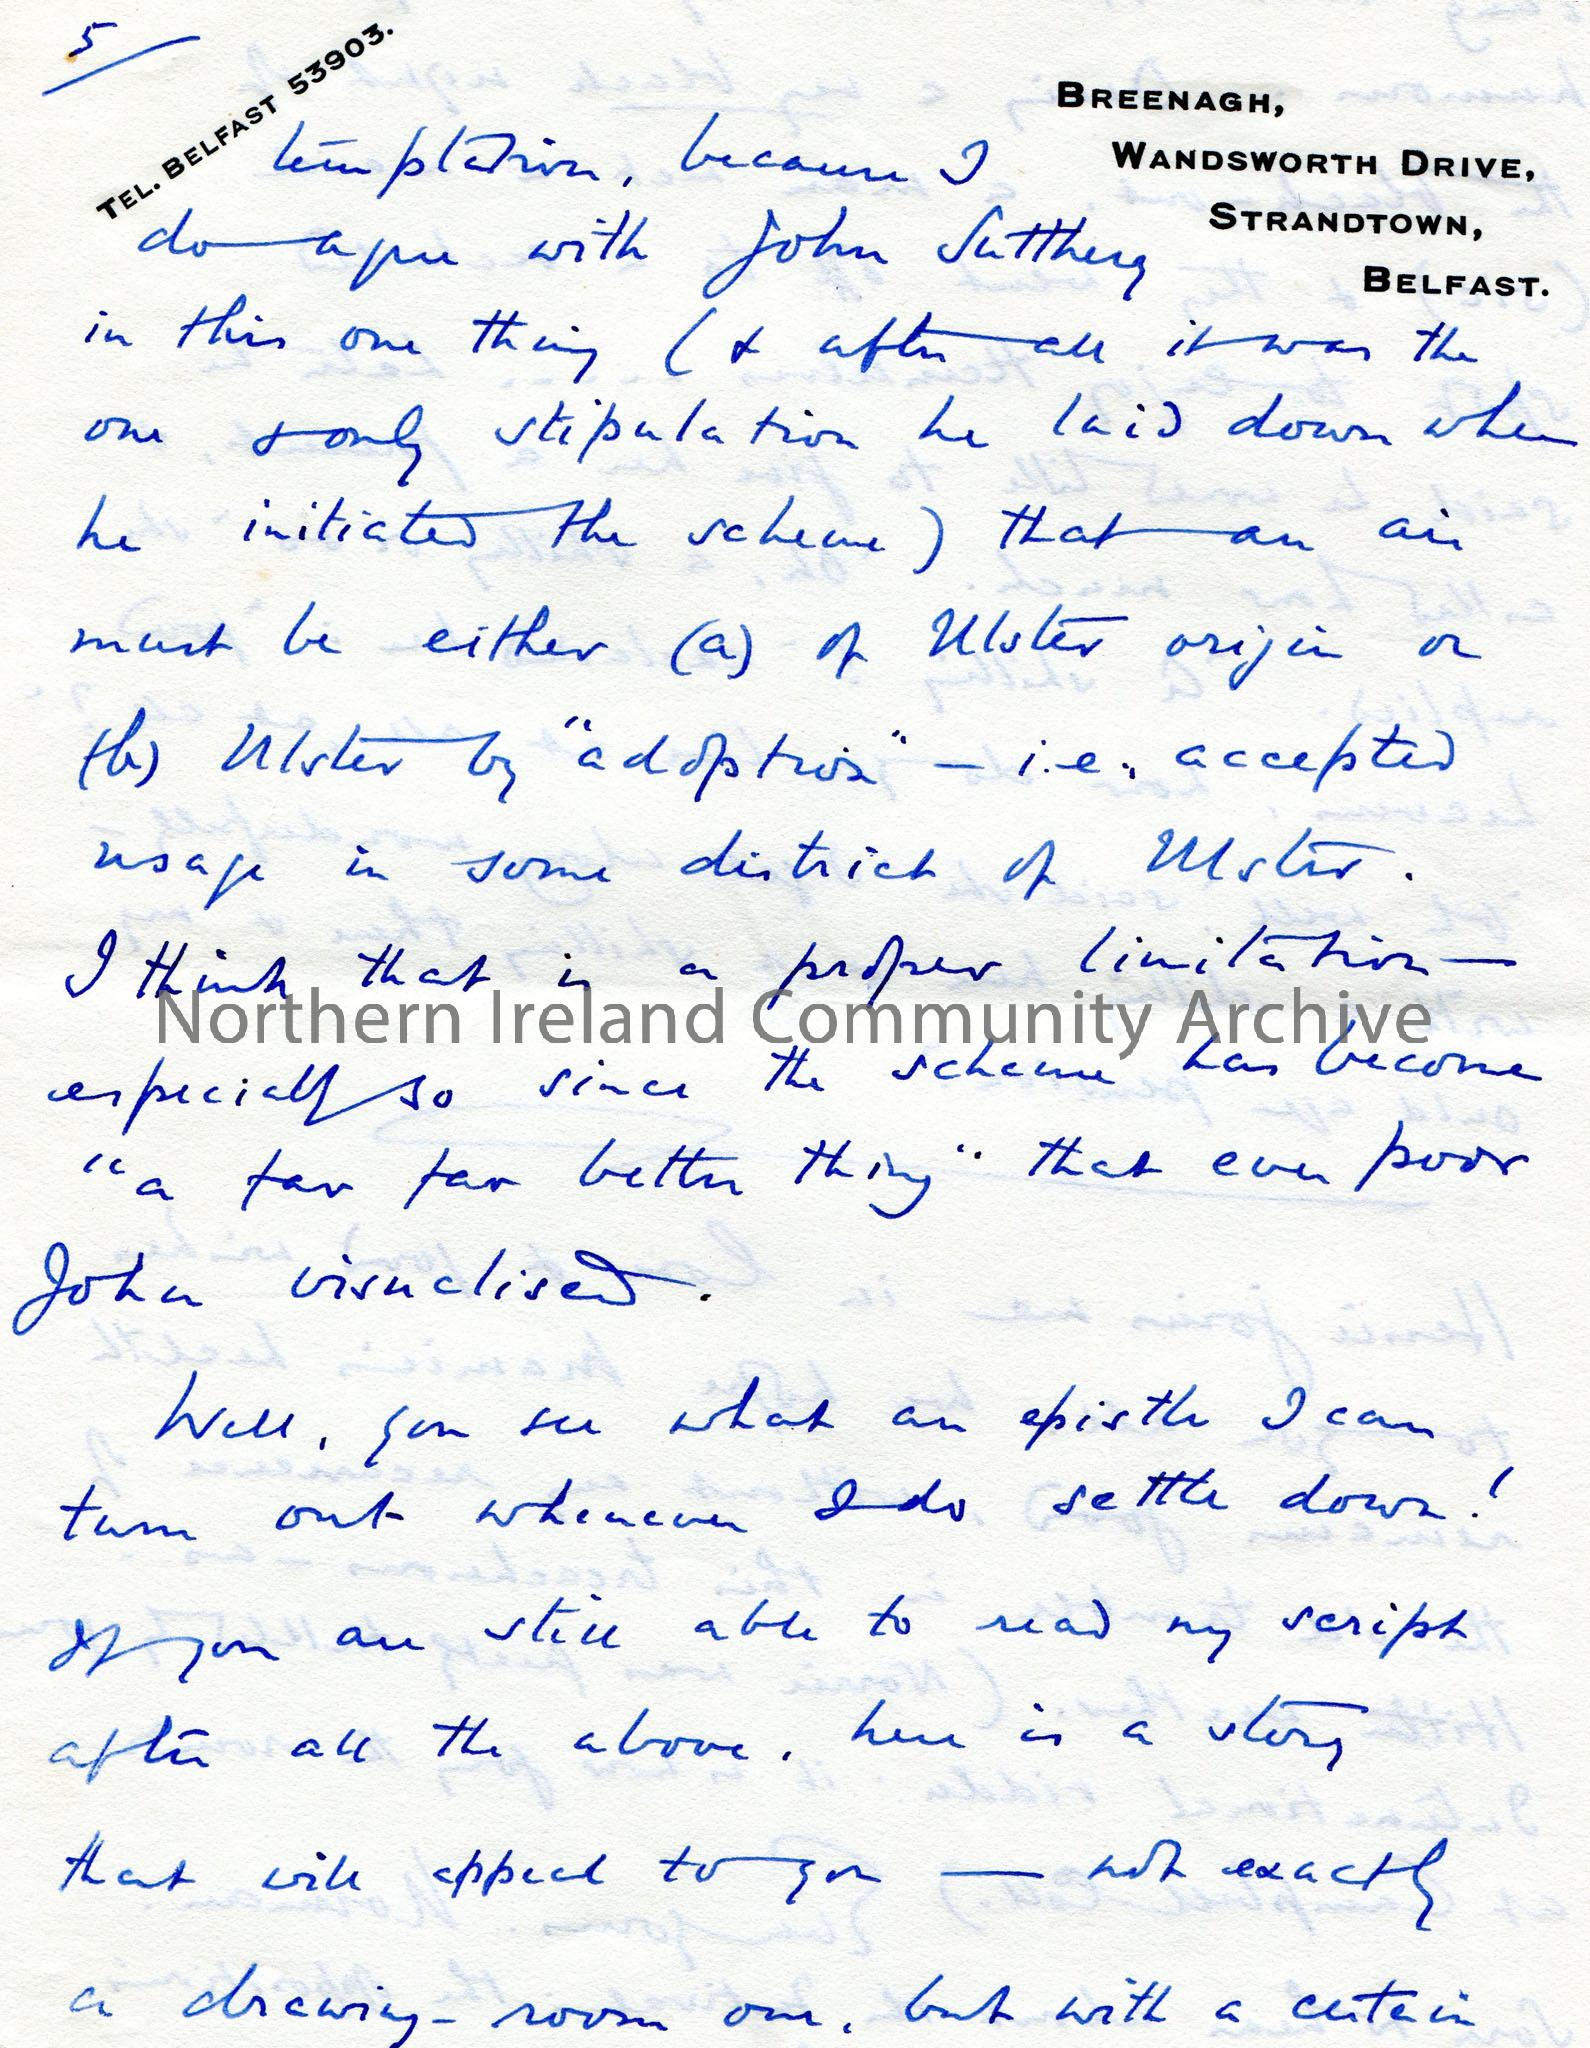 5
TEL. BELFAST 53903.
BREENAGH,
WANDSWORTH DRIVE,
STRANDTOWN,
BELFAST.
temptation, because I
do agree with John
in this one thing (& after all it was the
one & only stipulation he laid down when
he initiated the scheme) that an air
must be either (a) of Ulster origin or
(b) Ulster by "adoption" — i.e. accepted
usage in some district of Ulster.
I think that is a proper limitation —
Northern Ireland Community Archive
especially so since the scheme has become
"a far far better thing" that ever poor
John visualised.
Well, you see what an epistle I can
turn out whenever I do settle down!
If you are still able to read my script
after all the above, here is a story
that will appeal to you — not exactly
a drawing-room one, but with a certain